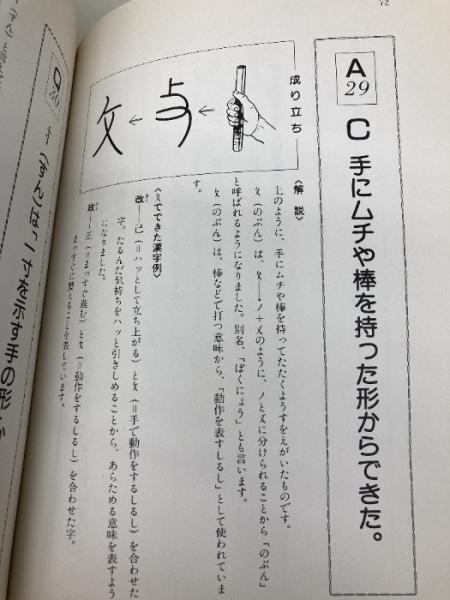 72
A
29
C 手にムチや棒を持った形からできた。
成り立ち
〈解説〉
上のように、手にムチや棒を持ってたたくようすをえがいたものです。
攵(のぶん)は、攵→ノ+文のように、ノと文に分けられることから「のぶん」
と呼ばれるようになりました。別名、「ぼくにょう」とも言います。
攵(のぶん)は、棒などで打つ意味から、「動作を表すしるし」として使われていま
す。
〈攵でできた漢字例〉
改―己(=ハッとして立ち上がる)と攵(=手で動作をするしるし)を合わせた
字。たるんだ気持ちをハッと引きしめることから、あらためる意味を表すよう
になりました。
政―正(=まっすぐ進む)と攵(=動作をするしるし)を合わせた字。
まっすぐに整えることを表しています。
Q
30
寸(すん)は「一寸を示す手の形」が